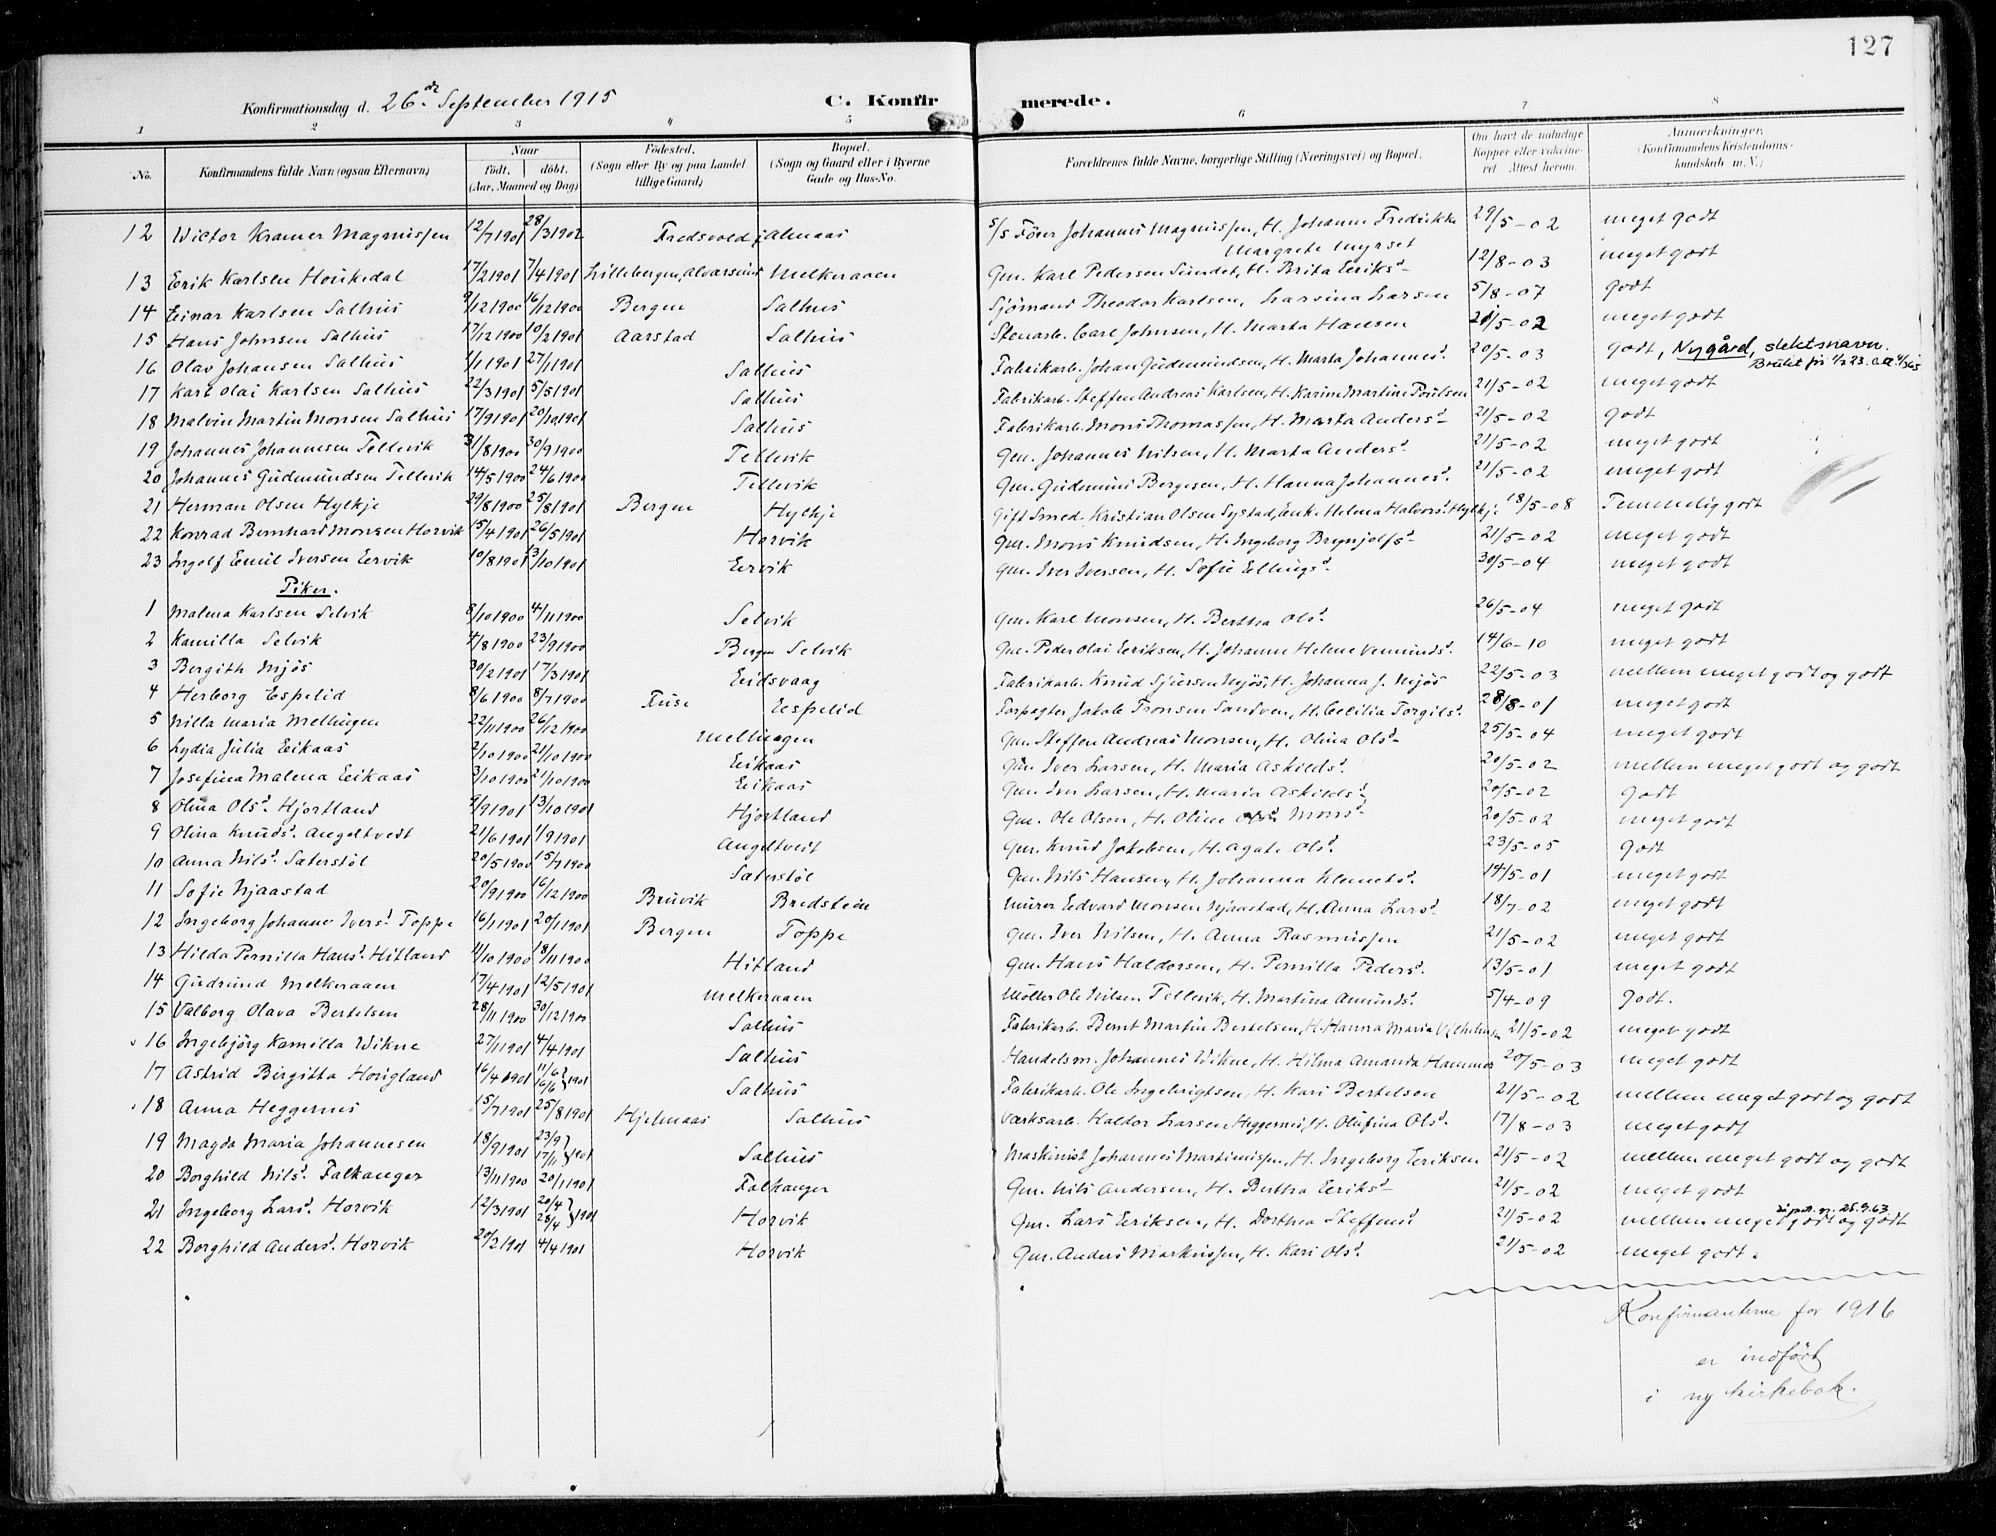 127
Konfirmationsdag d. 26de September 1915 C. Konfir merede.
1 2 3 4 5 6 7 8
No. Konfirmandens fulde Navn (ogsaa Efternavn) Naar födt. döbt. (Aar, Maaned og Dag) Födested. (Sogn eller By og paa Landet tillige Gaard) Bopæl. (Sogn og Gaard eller i Byerne Gade og Hus-No. Forældrenes fulde Navne, borgerlige Stilling (Næringsvei) og Bopæl. Om havt de naturlige Kopper eller vakcineret. Attest herom. Anmerkninger. (Konfirmandens Kristendomskundskab m. V.)
12 Wictor Kramer Magnussen 12/7 1901 28/3 1902 Fredsvold, Almaas S/S Förer Johannes Magnussen, H. Johanne Fredrikke 29/5-02 meget godt
Margrete Myrset
13 Erik Karlsen Houkedal 17/2 1901 7/4 1901 Lillebergen, Alversund Melkeraaen Gm. Karl Pedersen Sundet, H. Brita Eriksd 12/8-03 meget godt
14 Einar Karlsen Salhus 9/12 1900 16/12 1900 Bergen Salhus Sjömand Theodor Karlsen, Larsina Larsen 5/8-07 godt
15 Hans Johnsen Salhus 17/12 1900 10/2 1901 Aarstad Salhus Stenarb. Carl Johnsen, H. Marta Hansen 21/5-02 meget godt
16 Olav Johansen Salhus 1/1 1901 27/1 1901 Salhus Fabrikarb. Johan Gudmundsen, H. Marta Johannesd. 20/5-03 godt, Nygård, slektsnavn.
Brukt fri 1/2 23.
17 Karl Olai Karlsen Salhus 22/3 1901 5/5 1901 Salhus Fabrikarb. Steffen Andreas Karlsen, H. Karine Martine Poulsen 21/5-02 meget godt
18 Malvin Martin Monsen Salhus 17/9 1901 20/10 1901 Salhus Fabrikarb. Mons Thomassen, H. Marta Andersd 21/5-02 godt
19 Johannes Johannesen Tellevik 31/8 1900 30/9 1900 Tellevik Gm. Johannes Nilsen, H. Marta Andersd. 21/5-02 meget godt
20 Johannes Gudmundsen Tellevik 14/5 1900 24/6 1900 Tellevik Gm. Gudmund Bergesen, H. Hanna Johannesd. 21/5-02 meget godt
21 Herman Olsen Hylkje 29/8 1900 25/8 1901 Bergen Hylkje Gift Smed. Kristian Olsen Systad, Enk. Helena Halvorsd. Hylkj. 18/5-08 Temmelig godt
22 Konrad Bernhard Monsen Horvik 15/4 1901 26/5 1901 Horvik Gm. Mons Knudsen, H. Ingeborg Brynjolfsd 21/5-02 meget godt
23 Ingolf Emil Iversen Eervik 10/8 1901 13/10 1901 Eervik Gm. Iver Iversen, H. Sofie Ellingsd. 30/5-04 meget godt
Piker.
1 Malena Karlsen Selvik 8/10 1900 4/11 1900 Selvik Gm. Karl Monsen, H. Bertha Olsd. 26/5-04 meget godt
2 Kamilla Selvik 4/8 1900 23/9 1900 Bergen Selvik Gm. Peder Olai Eeriksen, H. Johanne Helene Vemundsd. 14/6-10 meget godt
3 Bergith Mjös 30/2 1901 17/3 1901 Eidsvaag Fabrikarb. Knud Sjursen Mjös, H. Johanna J. Mjös 22/5-03 mellem meget godt og godt
4 Herborg Espelid 8/6 1900 8/7 1900 Fuse Eespelid Forpagter Jakob Tronsen Sandven, H. Cecilia Torgilsd. 28/8-01 meget godt
5 Milla Maria Mellingen 22/11 1900 26/12 1900 Mellingen Gm. Steffen Andreas Monsen, H. Olina Olsd 25/5-04 meget godt
6 Lydia Julia Eikaas 2/10 1900 21/10 1900 Eikaas Gm. Iver Larsen, H. Maria Askildsd. 20/5-02 mellem meget godt og godt
7 Josefina Malena Eikaas 3/10 1900 21/10 1900 Eikaas Gm. Iver Larsen, H. Maria Askildsd. 20/5-02 godt
8 Olina Olsd. Hjortland 9/9 1901 13/10 1901 Hjortland Gm. Ole Olsen, H. Oline Monsd 20/5-02 meget godt
9 Olina Knudsd. Angeltvedt 21/6 1901 1/9 1901 Angeltvedt Gm. Knud Jakobsen, H. Agate Olsd. 23/5-05 godt
10 Anna Nilsd. Sæterstöl 20/5 1900 15/7 1900 Sæterstöl Gm. Nils Hansen, H. Johanna Klemetsd. 14/5-01 meget godt
11 Sofie Njaastad 20/9 1900 16/12 1900 Bruvik Bredstein Murer Edvard Monsen Njaastad, H. Anna Larsd 18/7-02 meget godt
12 Ingeborg Johanne Iversd. Toppe 16/1 1901 20/1 1901 Bergen Toppe Gm. Iver Nilsen, H. Anna Rasmussen 21/5-02 meget godt
13 Hilda Pernilla Hansd. Hitland 11/10 1900 18/11 1900 Hitland Gm. Hans Haldorsen, H. Pernilla Pedersd. 13/5-01 meget godt
14 Gudrund Melkeraaen 17/4 1901 12/5 1901 Melkeraaen Möller Ole Nilsen Tellevik, H. Martina Amundsd. 5/4-09 Godt.
15 Valborg Olava Bertelsen 28/11 1900 30/12 1900 Salhus Fabrikarb. Bernt Martin Bertelsen, H. Hanna Maria Vilhelmsen 21/5-02 meget godt
16 Ingebjörg Kamilla Wikne 27/1 1901 4/4 1901 Salhus Handelsm. Johannes Wikne, H. Hilma Amanda Hammer 20/5-03 meget godt
17 Astrid Birgitta Hougland 16/4 1901 11/6 16/6 } 1901 Salhus Fabrikarb. Ole Ingebrigtsen, H. Kari Bertelsen 21/5-02 mellem meget godt og godt
18 Anna Heggernes 15/7 1901 25/8 1901 Hjelmaas Salhus Værksarb. Haldor Larsen Heggernes, H. Olufina Olsd. 17/8-03 meget godt
19 Magda Maria Johannesen 18/9 1901 23/9 17/11 } 1901 Salhus Maskinist Johannes Martinussen, H. Ingeborg Eriksen 21/5-02 mellem meget godt og godt
20 Borghild Nilsd. Falkanger 13/11 1900 20/1 1901 Falkanger Gm. Nils Andersen, H. Bertha Eeriksd 21/5-02 meget godt
21 Ingeborg Larsd. Horvik 12/3 1901 20/4 28/4 } 1901 Horvik Gm. Lars Eeriksen, H. Dorthea Steffensd. 21/5-02 mellem meget godt og godt
22 Borghild Andersd. Horvik 20/2 1901 4/4 1901 Horvik Gm. Anders Markussen, H. Kari Olsd. 21/5-02 meget godt.
Konfirmanterne for 1916
er indfört
i ny kirkebok.